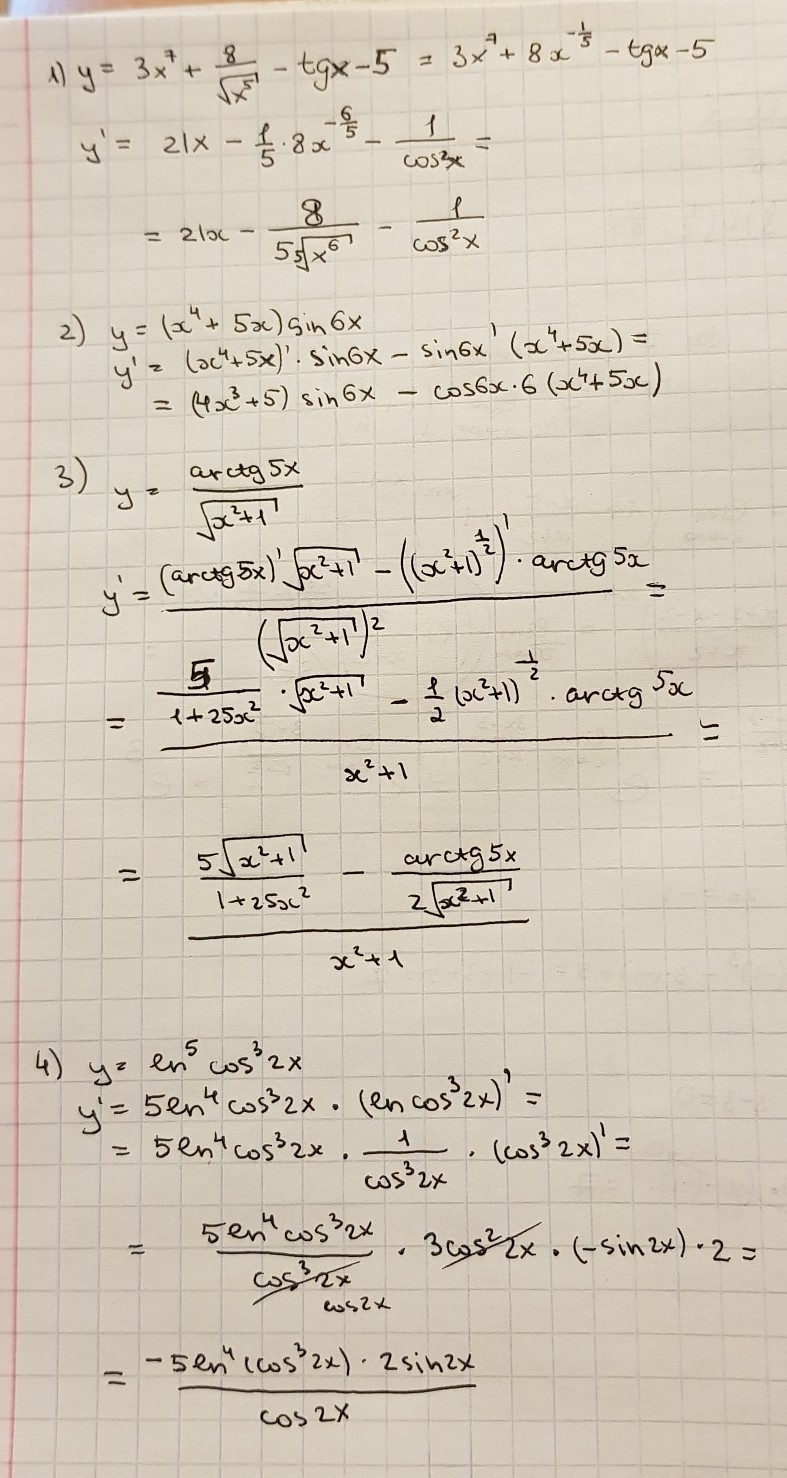 1) y = 3x⁷ + 8/√x⁵ - tgx - 5 = 3x⁷ + 8x^(-1/5) - tgx - 5
y' = 21x - 1/5 · 8x^(-6/5) - 1/cos²x =
= 21x - 8/(5 ⁵√x⁶) - 1/cos²x
2) y = (x⁴ + 5x) sin6x
y' = (x⁴+5x)' · sin6x - sin6x' (x⁴+5x) =
= (4x³+5) sin6x - cos6x · 6 (x⁴+5x)
3) y = arctg5x / √(x²+1)
y' = ((arctg5x)' √(x²+1) - ((x²+1)^(1/2))' · arctg5x) / (√(x²+1))² =
= (5/(1+25x²) · √(x²+1) - 1/2 (x²+1)^(-1/2) · arctg5x) / (x²+1) =
= (5√(x²+1)/(1+25x²) - arctg5x/(2√(x²+1))) / (x²+1)
4) y = ln⁵ cos³2x
y' = 5ln⁴cos³2x · (ln cos³2x)' =
= 5ln⁴cos³2x · 1/cos³2x · (cos³2x)' =
= 5ln⁴cos³2x / cos³2x · 3cos²2x · (-sin2x) · 2 =
cos2x
= -5ln⁴(cos³2x) · 2sin2x / cos2x